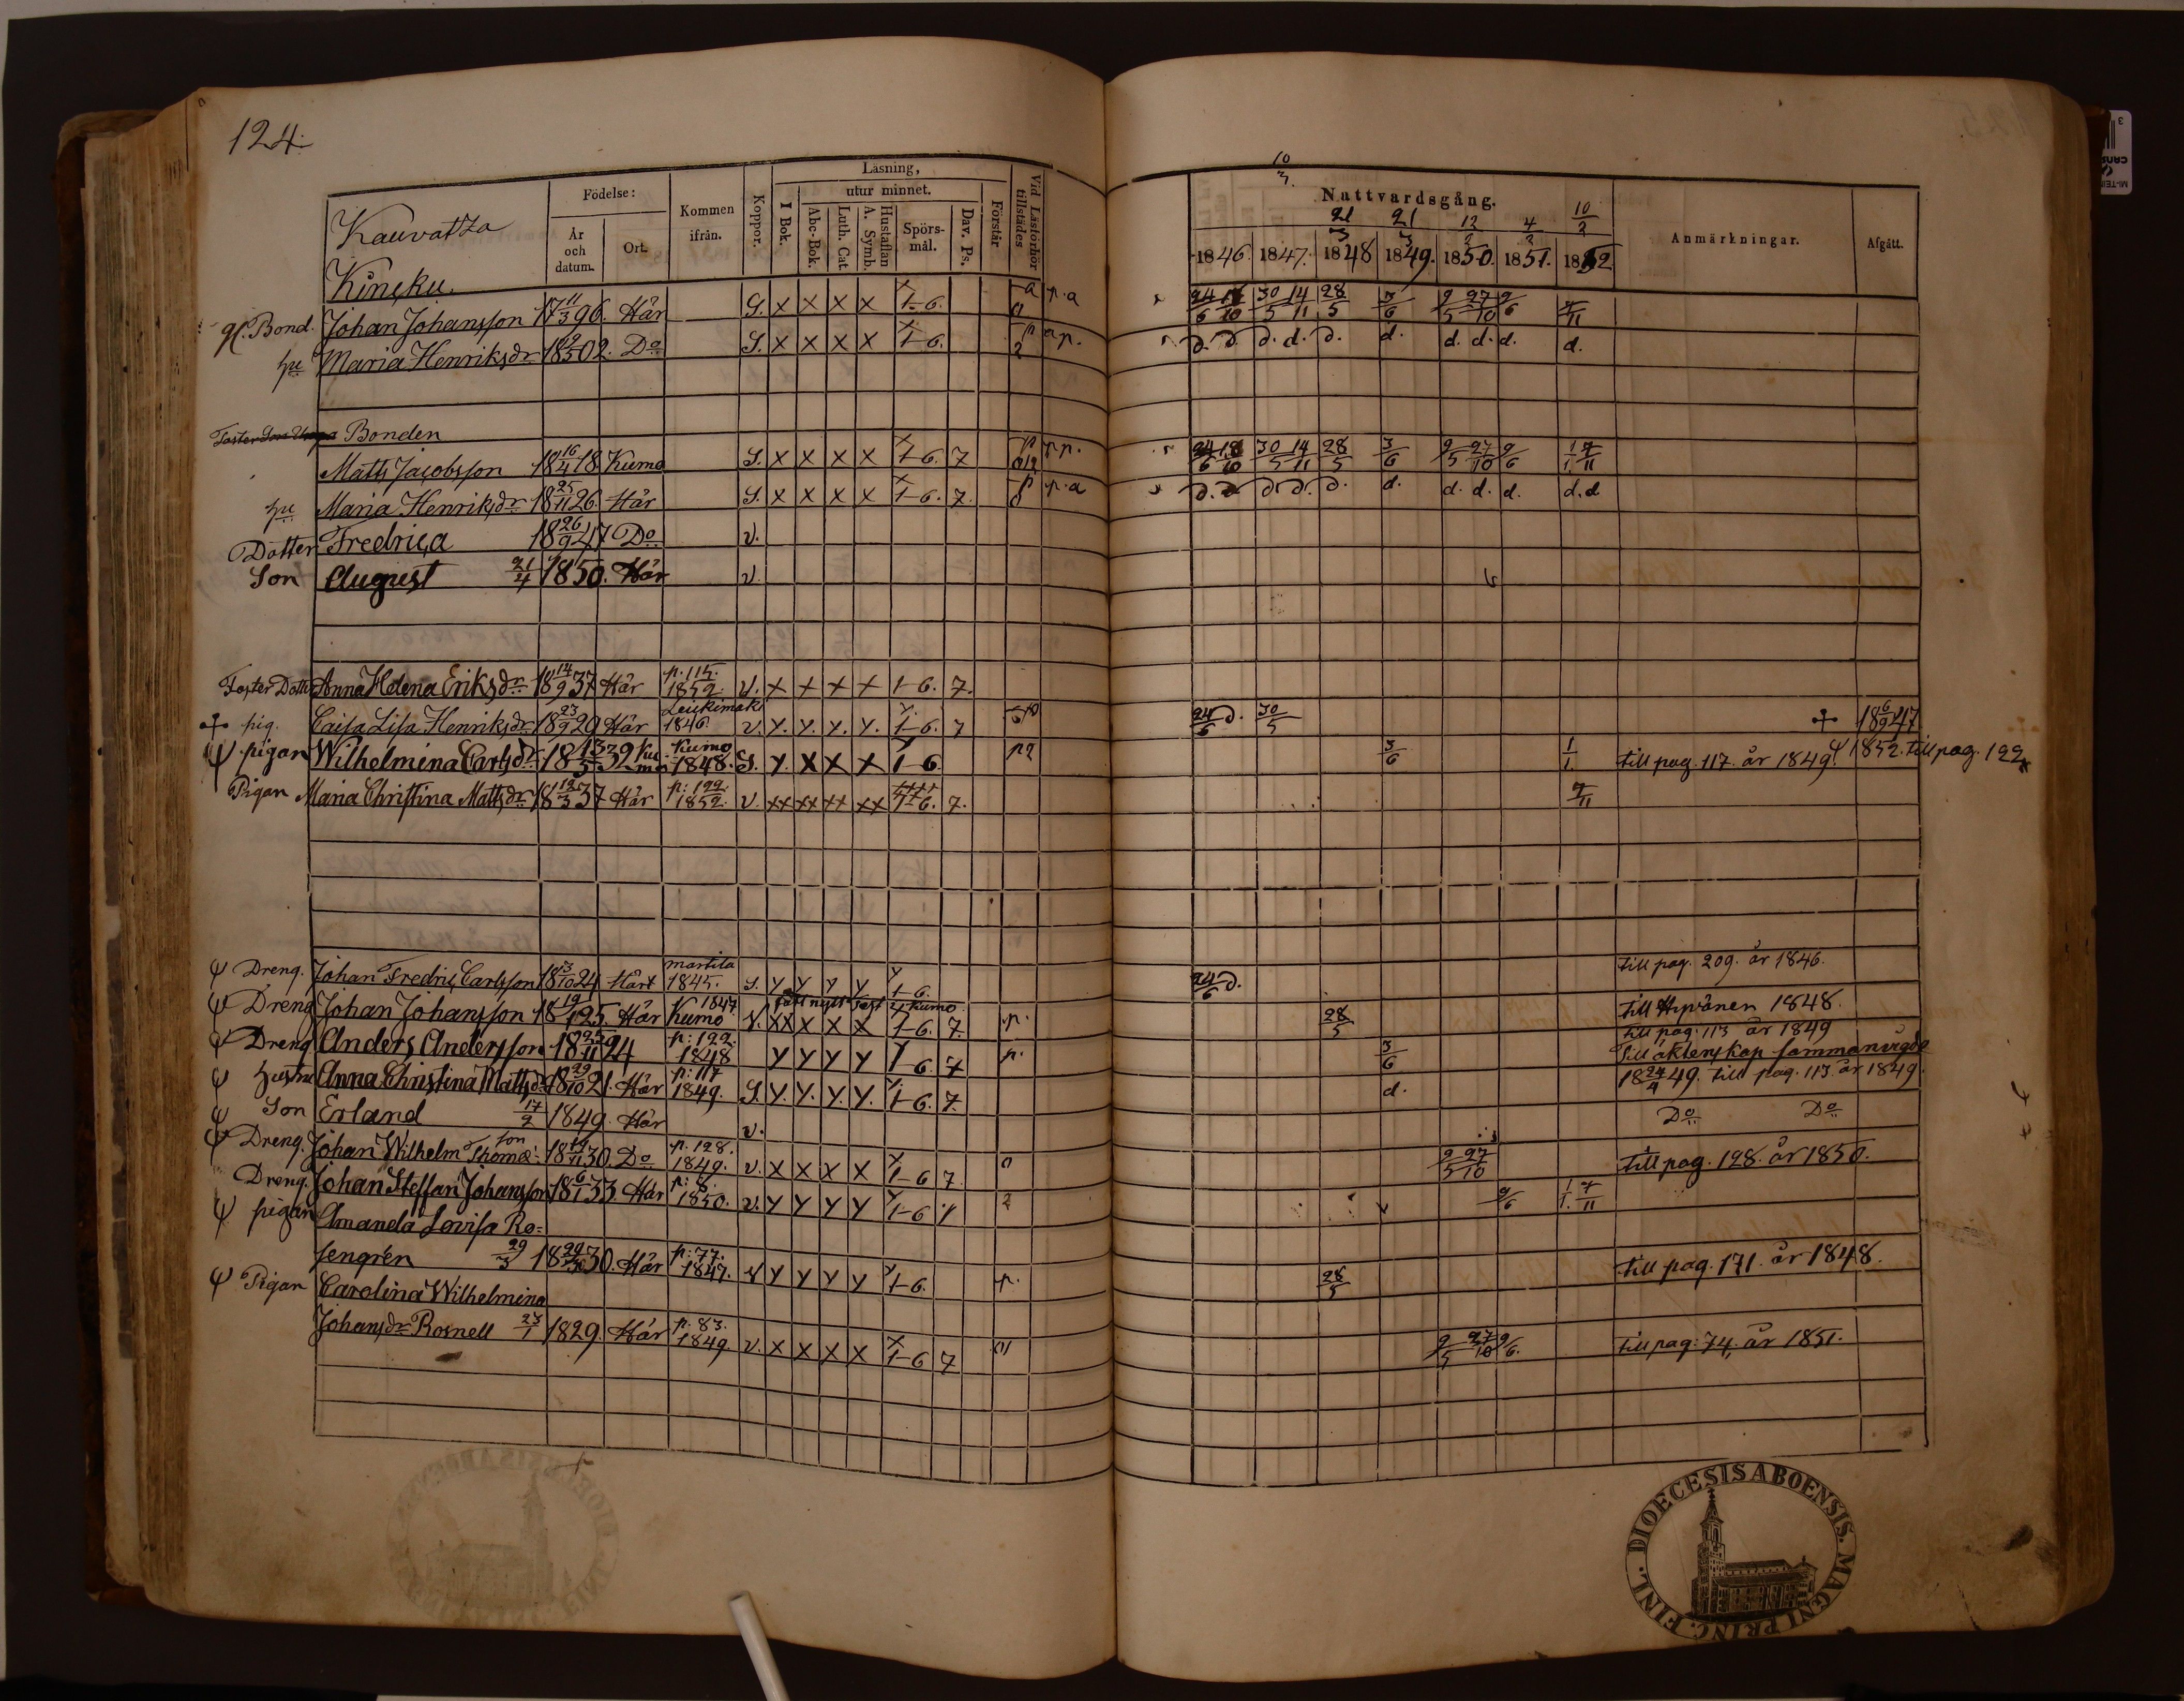 124.
Kauvatza
Kinçku.
Födelse:
År och datum.
Ort.
Kommen ifrån.
Koppor.
Läsning,
I Bok.
utur minnet.
Abc-Bok.
Luth. Cat.
Hustaflan A. Symb.
Spörs-mål.
Dav. Ps.
Förstår
Vid Läsförhör tillstädes
Nattvardsgång.
10/3. 21/3 21/3 12/2 4/2 10/2
1846. 1847. 1848 1849. 1850. 1851. 1852
Anmärkningar.
Afgått.
gl. Bond. Johan Johansson 17 11/3 96. Här S. x x x x 1-6. p.a 24/6 30/5 14/11 28/5 3/6 9/5 27/10 9/6 7/11
hu Maria Henriksdr 1802. Do S. x x x x 1-6. a p. d. d. d. d. d. d. d. d. d. d.
Bonden
Matts Jacobsson 18 16/4 18 Kumo S. x x x x 1-6. 7 p.p. 24/6 18/10 30/5 14/11 28/5 3/6 9/5 27/10 9/6 1/1 7/11
hu Maria Henriksdr 18 25/11 26. Här S. x x x x 1-6. 7. p.a d. d. d. d. d. d. d. d. d. d.d
Dotter Fredrica 18 26/9 47 Do v.
Son August 21/4 1850. Här v.
Foster Dotter Anna Helena Eriksdr 18 14/9 37 Här p. 115. 1852. v. x x x x 1-6. 7.
pig. Caisa Lisa Henriksdr 18 23/9 29 Här Leukimaki 1846. v. y. y. y. y. 1-6. 7 24/6 d. 30/5 18 6/9 47
Ψ pigan Wilhelmina Carlsdr 18 13/5 39 Kumo Kumo 1848. S. y. x x x 1-6 3/6 1/1 till pag. 117. år 1849. Ψ 1852. till pag. 122
Pigan Maria Christina Mattsdr 18 12/3 37 Här p: 122. 1852. v. xx xx xx xx 1-6. 7. 7/11
Ψ Dreng. Johan Fredric Carlsson 18 3/10 24 Här martila 1845. S. y y y y 1-6. 24/6 d. till pag. 209. år 1846.
Ψ Dreng Johan Johansson 18 19/1 25. Här Kumo 1847. v. xx x x x 1-6. 7. p. 28/5 till 1848.
Ψ Dreng Anders Andersson 18 25/11 24 p: 122. 1848 y y y y 1-6. 7 p. 3/6 till pag. 113 år 1849
till äktenskap sammanvigde
Ψ hustru Anna Christina Mattsdr 18 29/10 21. Här p: 117 1849. S. y. y. y. y. 1-6. 7. d. 18 24/4 49. till pag. 113. år 1849.
Ψ Son Erland 17/2 1849. Här v. Do Do
Ψ Dreng. Johan Wilhelm Thomæson 18 19/11 30. Do p. 128. 1849. v. x x x x 1-6 7. 9/5 27/10 till pag. 128. år 1850.
Dreng. Johan Steffan Johansson 18 6/1 33. Här p: 8. 1850. v. y y y y 1-6 9/6 1/1 7/11
Ψ pigan Amanda Lovisa Ro=
sengren 29/3 1830. Här p: 77. 1847. y y y y 1-6. p. 28/5 till pag. 171. år 1848.
Ψ Pigan Carolina Wilhelmina
Johansdr Rosnell 23/1 1829. Här p. 83. 1849. v. x x x x 1-6 7 9/5 27/10 9/6. till pag: 74. år 1851.
DIOECESIS ABOENSIS. MAGNI PRINC. FINL.